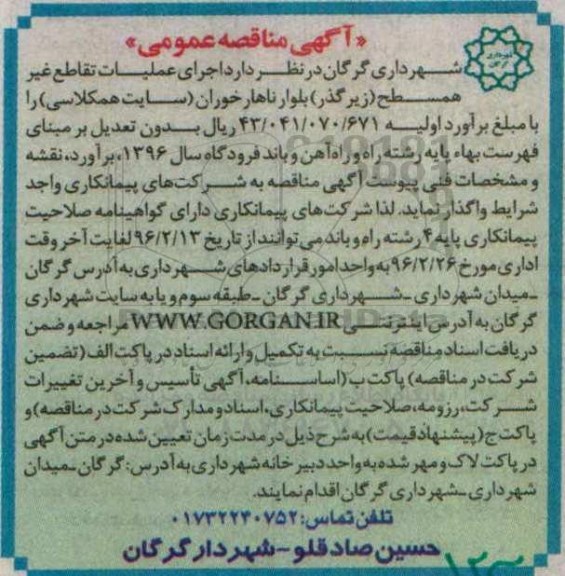 «آگهی مناقصه عمومی»
شهرداری گرگان در نظر دارد اجرای عملیات تقاطع غیر
همسطح (زیرگذر) بلوار ناهارخوران (سایت همکلاسی) را
با مبلغ برآورد اولیه ۴۳/۰۴۱/۰۷۰/۶۷۱ ریال بدون تعدیل بر مبنای
فهرست بهاء پایه رشته راه و راه‌آهن و باند فرودگاه سال ۱۳۹۶، برآورد، نقشه
و مشخصات فنی پیوست آگهی مناقصه به شرکت‌های پیمانکاری واجد
شرایط واگذار نماید. لذا شرکت‌های پیمانکاری دارای گواهینامه صلاحیت
پیمانکاری پایه ۴ رشته راه و باند می‌توانند از تاریخ ۹۶/۲/۱۳ لغایت آخر وقت
اداری مورخ ۹۶/۲/۲۶ به واحد امور قراردادهای شهرداری به آدرس گرگان
ـ میدان شهرداری ـ شهرداری گرگان ـ طبقه سوم و یا به سایت شهرداری
گرگان به آدرس اینترنتی WWW.GORGAN.IR مراجعه و ضمن
دریافت اسناد مناقصه نسبت به تکمیل و ارائه اسناد در پاکت الف (تضمین
شرکت در مناقصه) پاکت ب (اساسنامه، آگهی تأسیس و آخرین تغییرات
شرکت، رزومه، صلاحیت پیمانکاری، اسناد و مدارک شرکت در مناقصه) و
پاکت ج (پیشنهاد قیمت) به شرح ذیل در مدت زمان تعیین شده در متن آگهی
در پاکت لاک و مهر شده به واحد دبیرخانه شهرداری به آدرس: گرگان ـ میدان
شهرداری ـ شهرداری گرگان اقدام نمایند.
تلفن تماس: ۰۱۷۳۲۲۴۰۷۵۲
حسین صادقلو - شهردار گرگان